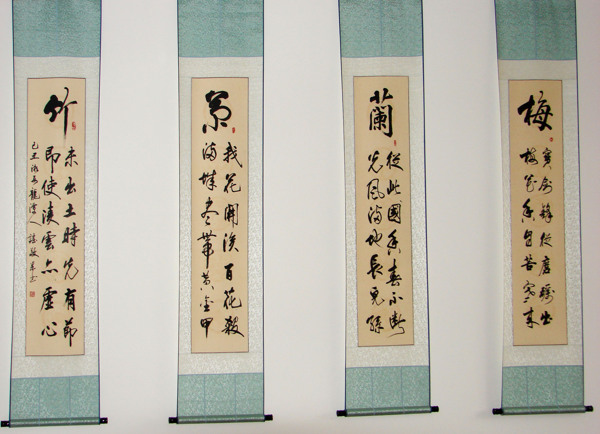 梅
寶劍鋒從磨礪出
梅花香自苦寒來
蘭
從此國香春不斷
光風滿地長兒孫
菊
我花開後百花殺
滿城盡帶黃金甲
竹
未出土時先有節
即使凌雲亦虛心
己丑